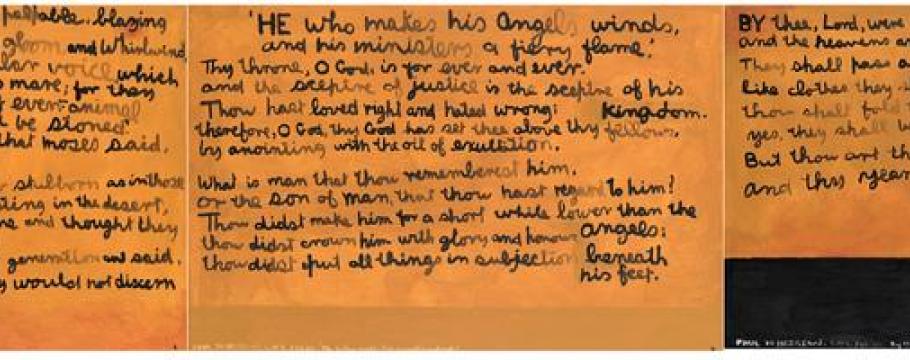 palpable, blazing
gloom and whirlwind
voice which
more; for they
even animal
be stoned"
that moses said,
stubborn as in those
in the desert,
and thought they
generation and said,
would not discern
'HE who makes his Angels winds,
and his ministers a fiery flame.'
Thy throne, O God, is for ever and ever.
and the sceptre of justice is the sceptre of his
Kingdom.
Thou hast loved right and hated wrong;
therefore, O God, thy God has set thee above thy fellows,
by anointing with the oil of exultation.
What is man that thou rememberest him,
or the son of man, that thou hast regard to him?
Thou didst make him for a short while lower than the
angels;
thou didst crown him with glory and honour
thou didst put all things in subjection beneath
his feet.
BY thee, Lord, were
and the heavens
They shall pass
like clothes they
thou shalt fold
yes, they shall
But thou art
and thy years